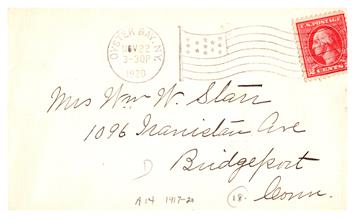 OYSTER BAY, N.Y.
NOV 22
3-30P
1920
U.S. POSTAGE
2 CENTS 2
Mrs Wm W. Starr
1096 Iranistan Ave
Bridgeport
Conn.
A 14 1917-20
18.